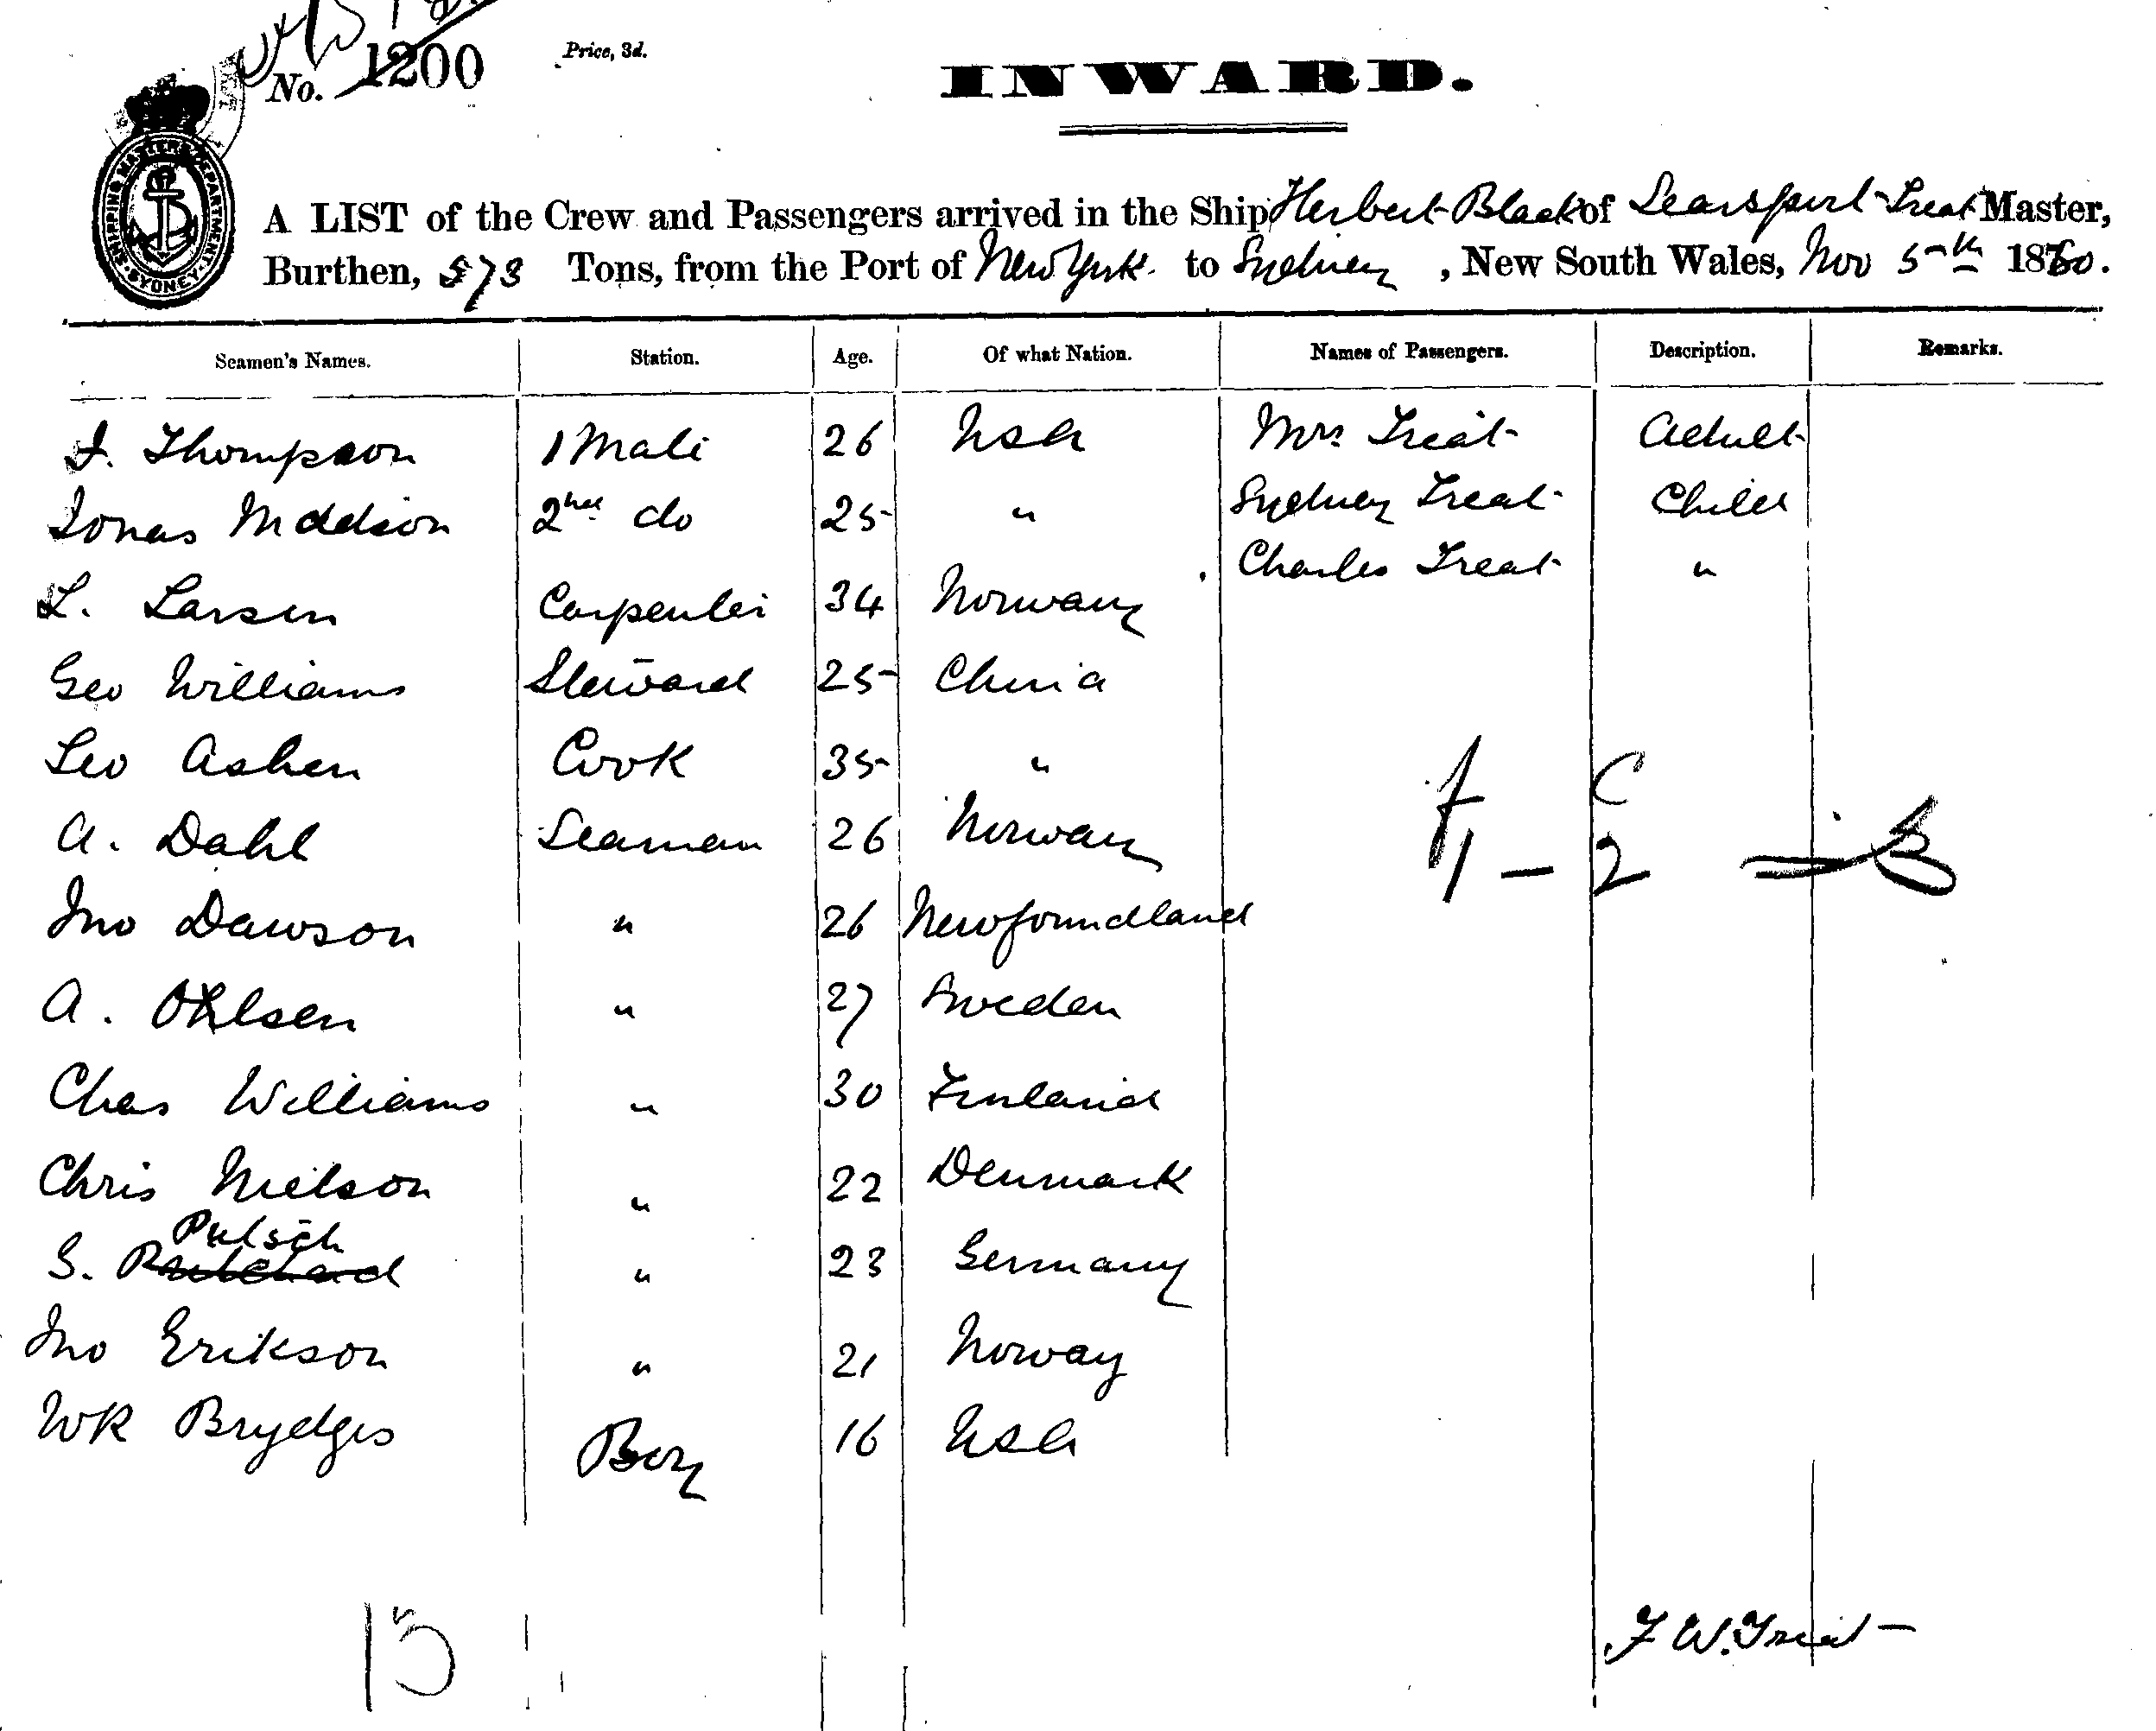 No. 1200
Price, 3d.
INWARD.
SHIPPING MASTER'S DEPARTMENT SYDNEY
A LIST of the Crew and Passengers arrived in the Ship Herbert Black of Searsport Treat Master,
Burthen, 573 Tons, from the Port of New York to Sydney, New South Wales, Nov 5th 1880.
Seamen's Names. Station. Age. Of what Nation. Names of Passengers. Description. Remarks.
J. Thompson 1 Mate 26 USA Mrs Treat Adult
Jonas Mddison 2nd do 25 " Sydney Treat Child
Charles Treat "
L. Larsen Carpenter 34 Norway
Geo Williams Steward 25 China
Leo Ashen Cook 35 "
A. Dahl Seaman 26 Norway
Jno Dawson " 26 Newfoundland
A. Ohlsen " 27 Sweden
Chas Williams " 30 Finland
Chris Nielson " 22 Denmark
Putsch
S. Pritchard " 23 Germany
Jno Erikson " 21 Norway
WR Brydges Boy 16 USA
C
1 – 2 = 3
13
F W. Treat